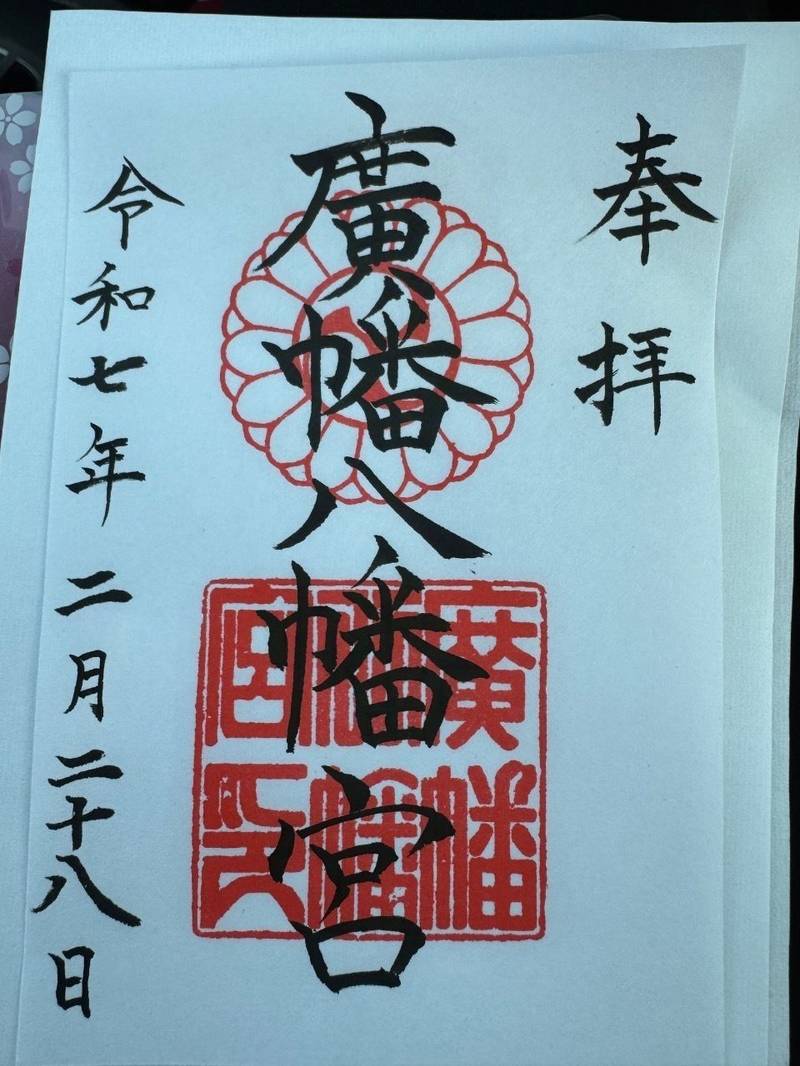 奉拝
廣幡八幡宮
令和七年二月二十八日
廣幡八幡宮印